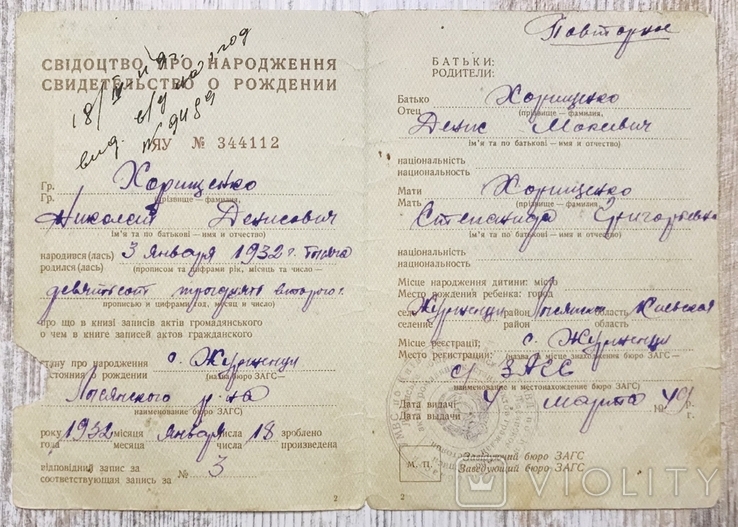 СВІДОЦТВО ПРО НАРОДЖЕННЯ
СВИДЕТЕЛЬСТВО О РОЖДЕНИИ
18/IV
вид.
№ 9489
ЯУ № 344112
Гр. Хорищенко
Гр. (прізвище – фамилия,
Николай Денисович
ім'я та по батькові – имя и отчество)
народився(лась) 3 января 1932 г. тысяча
родился(лась) (прописом та цифрами рік, місяць та число –
девятьсот тридцать второго г.
прописью и цифрами год, месяц и число)
про що в книзі записів актів громадянського
о чем в книге записей актов гражданского
стану про народження с. Журженци
состояния о рождении (назва бюро ЗАГС –
Лысянского р-на
наименование бюро ЗАГС)
року 1932 місяця января числа 18 зроблено
года месяца числа произведена
відповідний запис за № 3
соответствующая запись за
2
Повторное
БАТЬКИ:
РОДИТЕЛИ:
Батько Хорищенко
Отец (прізвище – фамилия,
Денис Мокеевич
ім'я та по батькові – имя и отчество)
національність
национальность
Мати Хорищенко
Мать (прізвище – фамилия,
Степанида Григорьевна
ім'я та по батькові – имя и отчество)
національність
национальность
Місце народження дитини: місто
Место рождения ребенка: город
село Журженци район Лысянский область Киевская
селение район область
Місце реєстрації: с. Журженци
Место регистрации: (назва та місце знаходження бюро ЗАГС –
с/ ЗАГС
наименование и местонахождение бюро ЗАГС)
Дата видачі 4 марта 1949 р.
Дата выдачи г.
М. П.
Завідуючий бюро ЗАГС
Заведующий бюро ЗАГС
2
VIOLITY